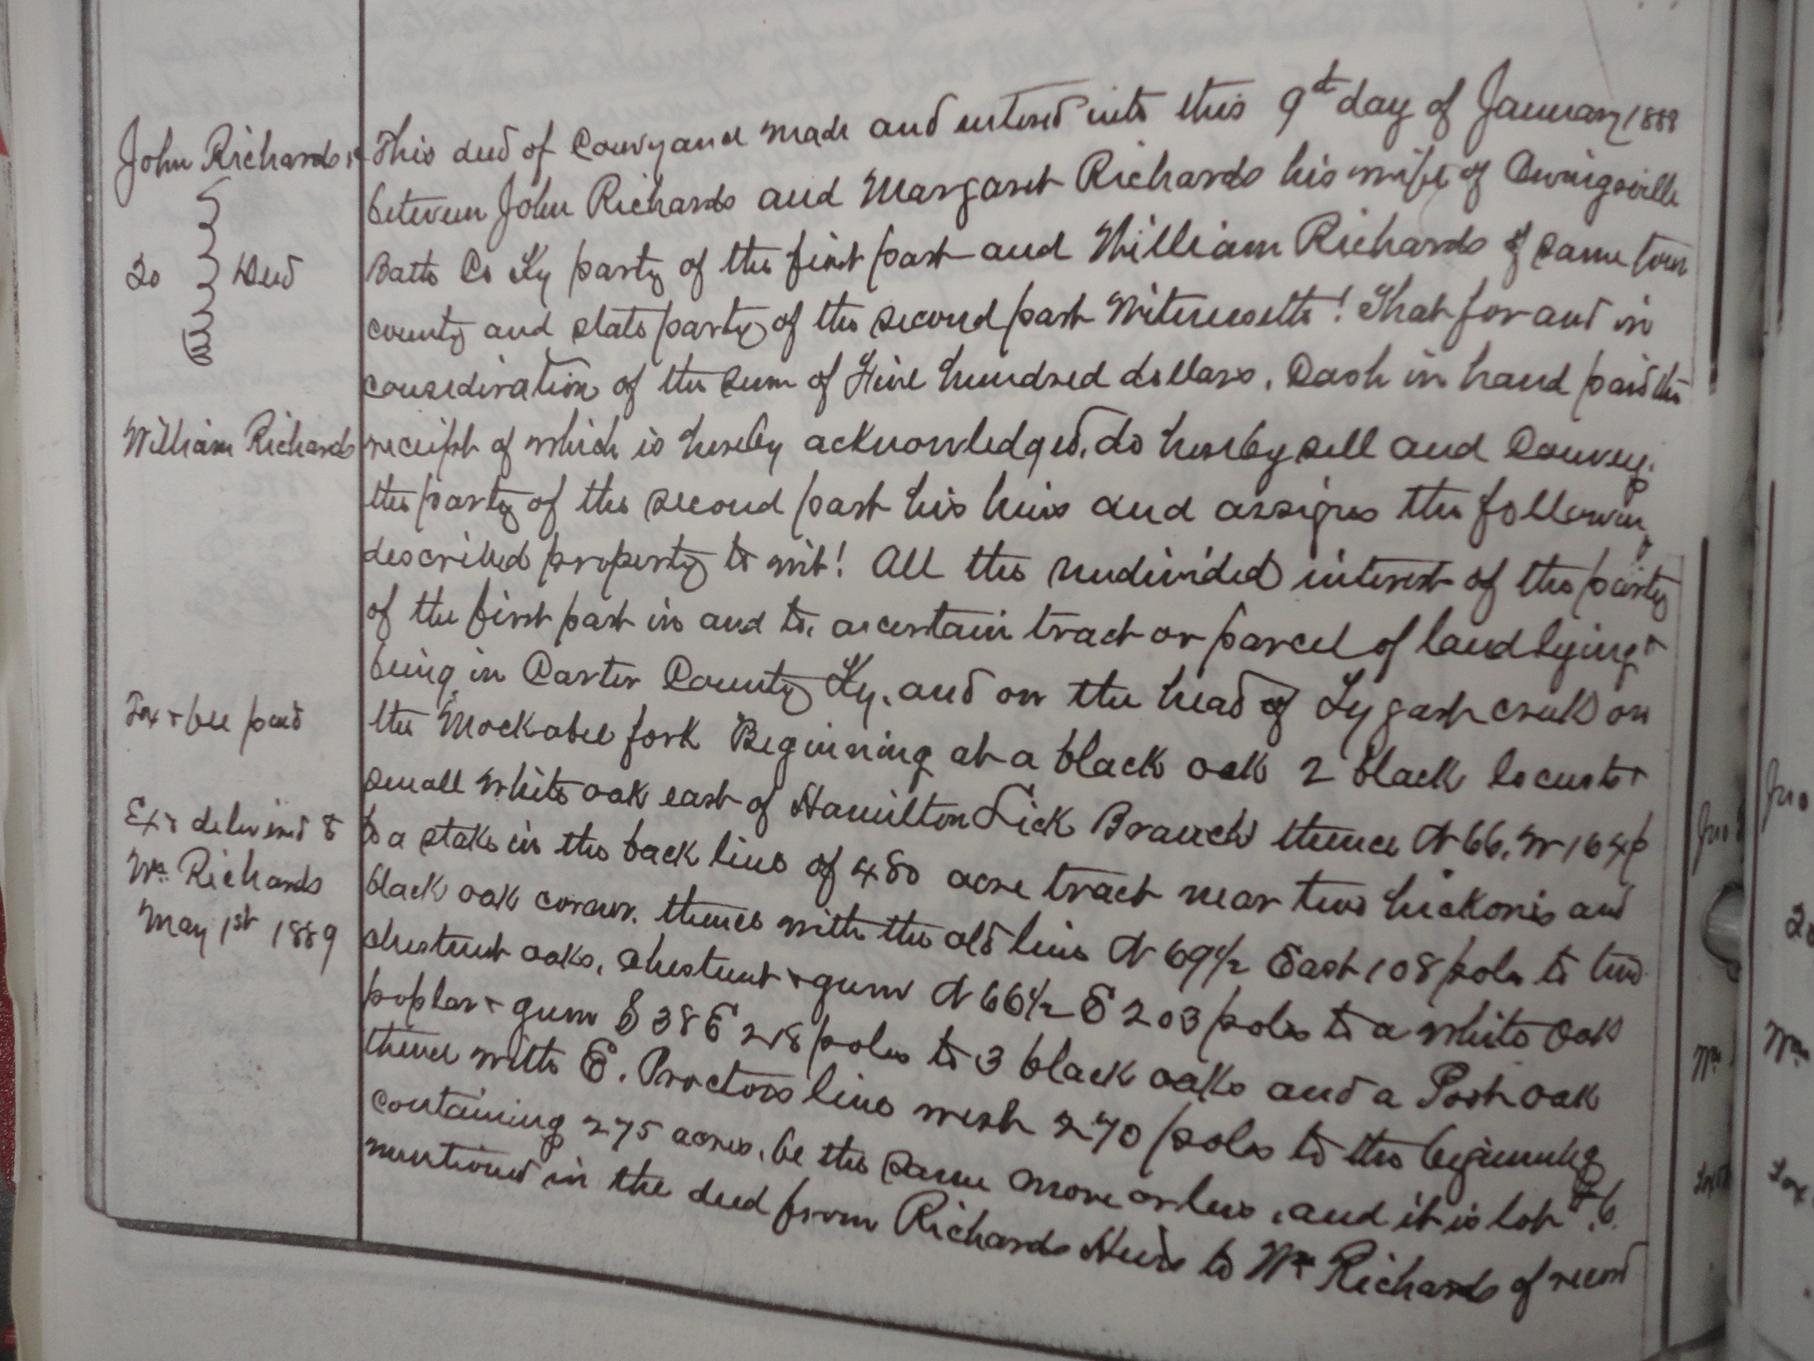 John Richards +
To Deed
William Richards
Tax + fee paid
Ex & delivered to
Wm Richards
May 1st 1889
This deed of Conveyance made and entered into this 9th day of January 1889
between John Richards and Margaret Richards his wife of Owingsville
Bath Co Ky party of the first part and William Richards of same town
county and state party of the second part Witnesseth! That for and in
consideration of the sum of Five hundred dollars, Cash in hand paid the
receipt of which is hereby acknowledged, do hereby sell and Convey
the party of the second part his heirs and assigns the following
described property to wit! All the undivided interest of the party
of the first part in and to, a certain tract or parcel of land lying +
being in Carter County Ky, and on the head of Tygart creek on
the Mockabee fork Beginning at a black oak 2 black locusts +
small white oak east of Hamilton Lick Branch thence N 66, W 164 p
to a stake in the back line of 480 acre tract near two hickories and
black oak corner, thence with the old line N 69 1/2 East 108 poles to two
chestnut oaks, chestnut + gum N 66 1/2 E 203 poles to a white oak
poplar + gum S 38 E 218 poles to 3 black oaks and a Post oak
thence with E. Proctors line west 270 poles to the beginning
containing 275 acres, be the same more or less, and it is lot # 6.
mentioned in the deed from Richards Heirs to Wm Richards of record
Jno
To
Wm
Tax